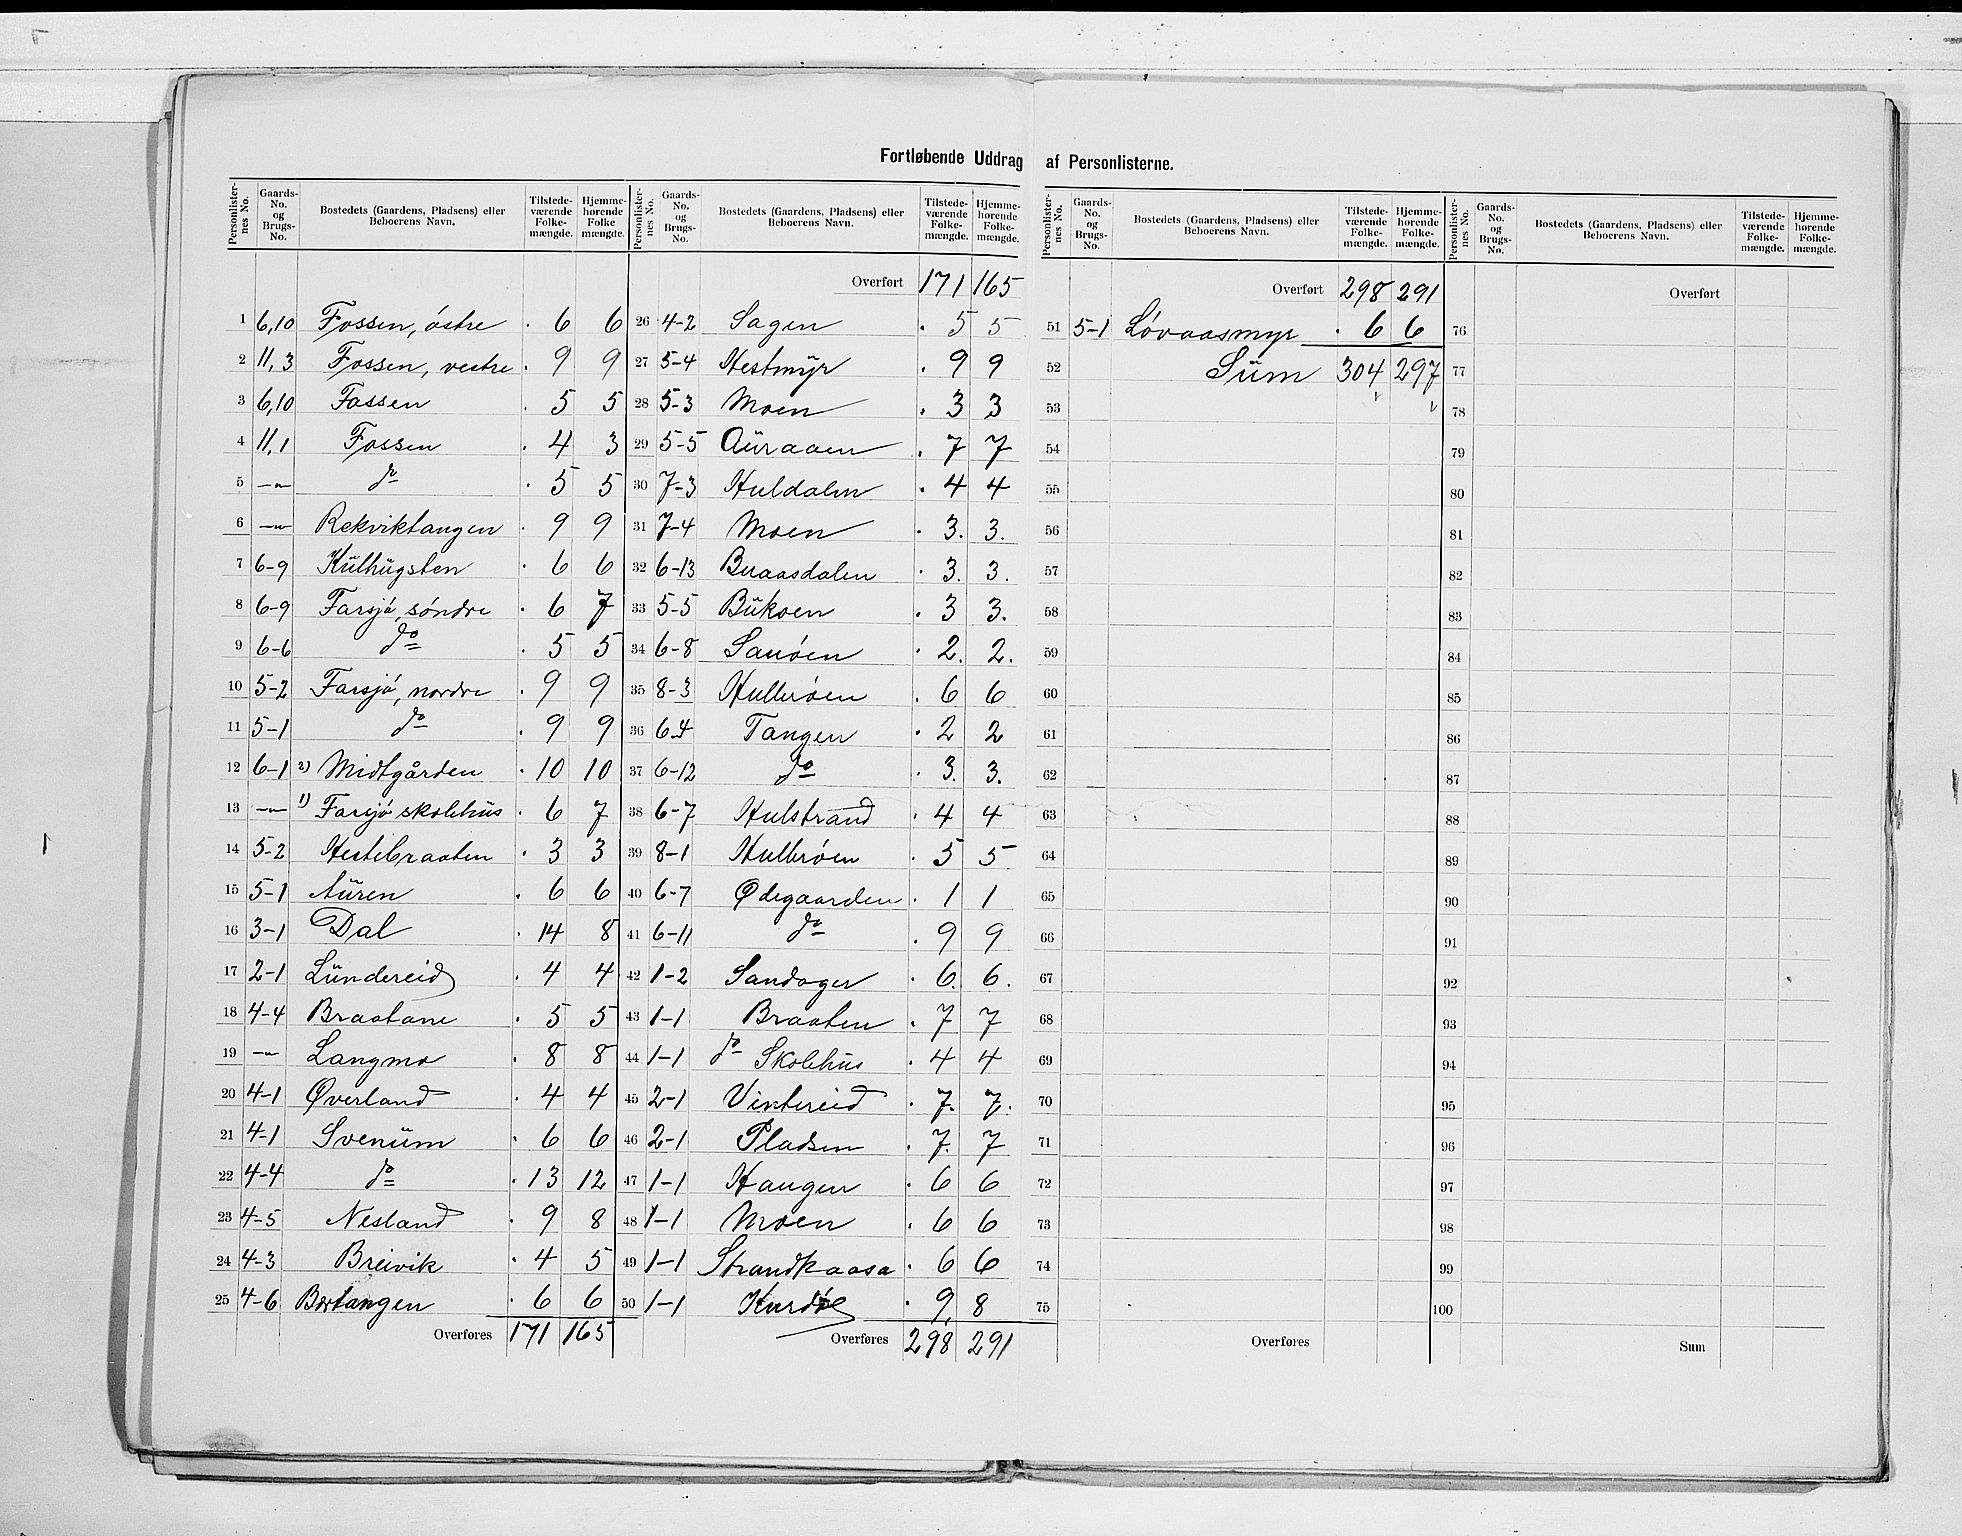 Fortløbende Uddrag af Personlisterne.
Personlister-nes No. | Gaards-No. og Brugs-No. | Bostedets (Gaardens, Pladsens) eller Beboerens Navn. | Tilstede-værende Folke-mængde. | Hjemme-hørende Folke mængde.
1 6,10 Fossen, östre . 6 6
2 11,3 Fossen, vestre . 9 9
3 6,10 Fossen . 5 5
4 11,1 Fossen . 4 3
5 —"— do . 5 5
6 —"— Rekviktangen . 9 9
7 6-9 Külhügsten . 6 6
8 6-9 Farsjó, söndre . 6 7
9 6-6 do . 5 5
10 5-2 Farsjó, nordre . 9 9
11 5-1 do . 9 9
12 6-1 2) Midtgården . 10 10
13 —"— 1) Farsjó skolehüs . 6 7
14 5-2 Hestebraaten . 3 3
15 5-1 Aüren . 6 6
16 3-1 Dal . 14 8
17 2-1 Lündereid . 4 4
18 4-4 Braatane . 5 5
19 —"— Langmo . 8 8
20 4-1 Øverland . 4 4
21 4-1 Svenüm . 6 6
22 4-4 do . 13 12
23 4-5 Nesland . 9 8
24 4-3 Breivik . 4 5
25 4-6 Bortangen . 6 6
Overføres 171 165
Personlister-nes No. | Gaards-No. og Brugs-No. | Bostedets (Gaardens, Pladsens) eller Beboerens Navn. | Tilstede-værende Folke-mængde. | Hjemme-hørende Folke-mængde.
Overført 171 165
26 4-2 Sagen . 5 5
27 5-4 Hestmÿr . 9 9
28 5-3 Moen . 3 3
29 5-5 Aüraaen . 7 7
30 7-3 Huldalen . 4 4
31 7-4 Moen . 3. 3.
32 6-13 Buaasdalen . 3. 3.
33 5-5 Bükoen . 3 3.
34 6-8 Sauóen . 2. 2.
35 8-3 Hulleróen . 6 6
36 6-4 Tangen . 2 2
37 6-12 do . 3. 3.
38 6-7 Hulstrand . 4 4
39 8-1 Hulleróen . 5 5
40 6-7 Ødegaarden . 1 1
41 6-11 do . 9 9
42 1-2 Sandager . 6. 6.
43 1-1 Braaten . 7 7
44 1-1 do Skolehüs . 4 4
45 2-1 Vintereid . 7. 7.
46 2-1 Pladsen . 7. 7
47 1-1 Haugen . 6 6
48 1-1 Moen . 6 6
49 1-1 Strandkaasa . 6 6
50 1-1 . 9 8
Overføres 298 291
Personlister-nes No. | Gaards-No. og Brugs-No. | Bostedets (Gaardens, Pladsens) eller Beboerens Navn. | Tilstede-værende Folke-mængde. | Hjemme-hørende Folke-mængde.
Overført 298 291
51 5-1 Lóvaasmyr . 6 6
52 Süm 304 297
53
54
55
56
57
58
59
60
61
62
63
64
65
66
67
68
69
70
71
72
73
74
75
Overføres
Personlister-nes No. | Gaards-No. og Brugs-No. | Bostedets (Gaardens, Pladsens) eller Beboerens Navn. | Tilstede-værende Folke-mængde. | Hjemme-hørende Folke-mængde.
Overført
76
77
78
79
80
81
82
83
84
85
86
87
88
89
90
91
92
93
94
95
96
97
98
99
100
Sum